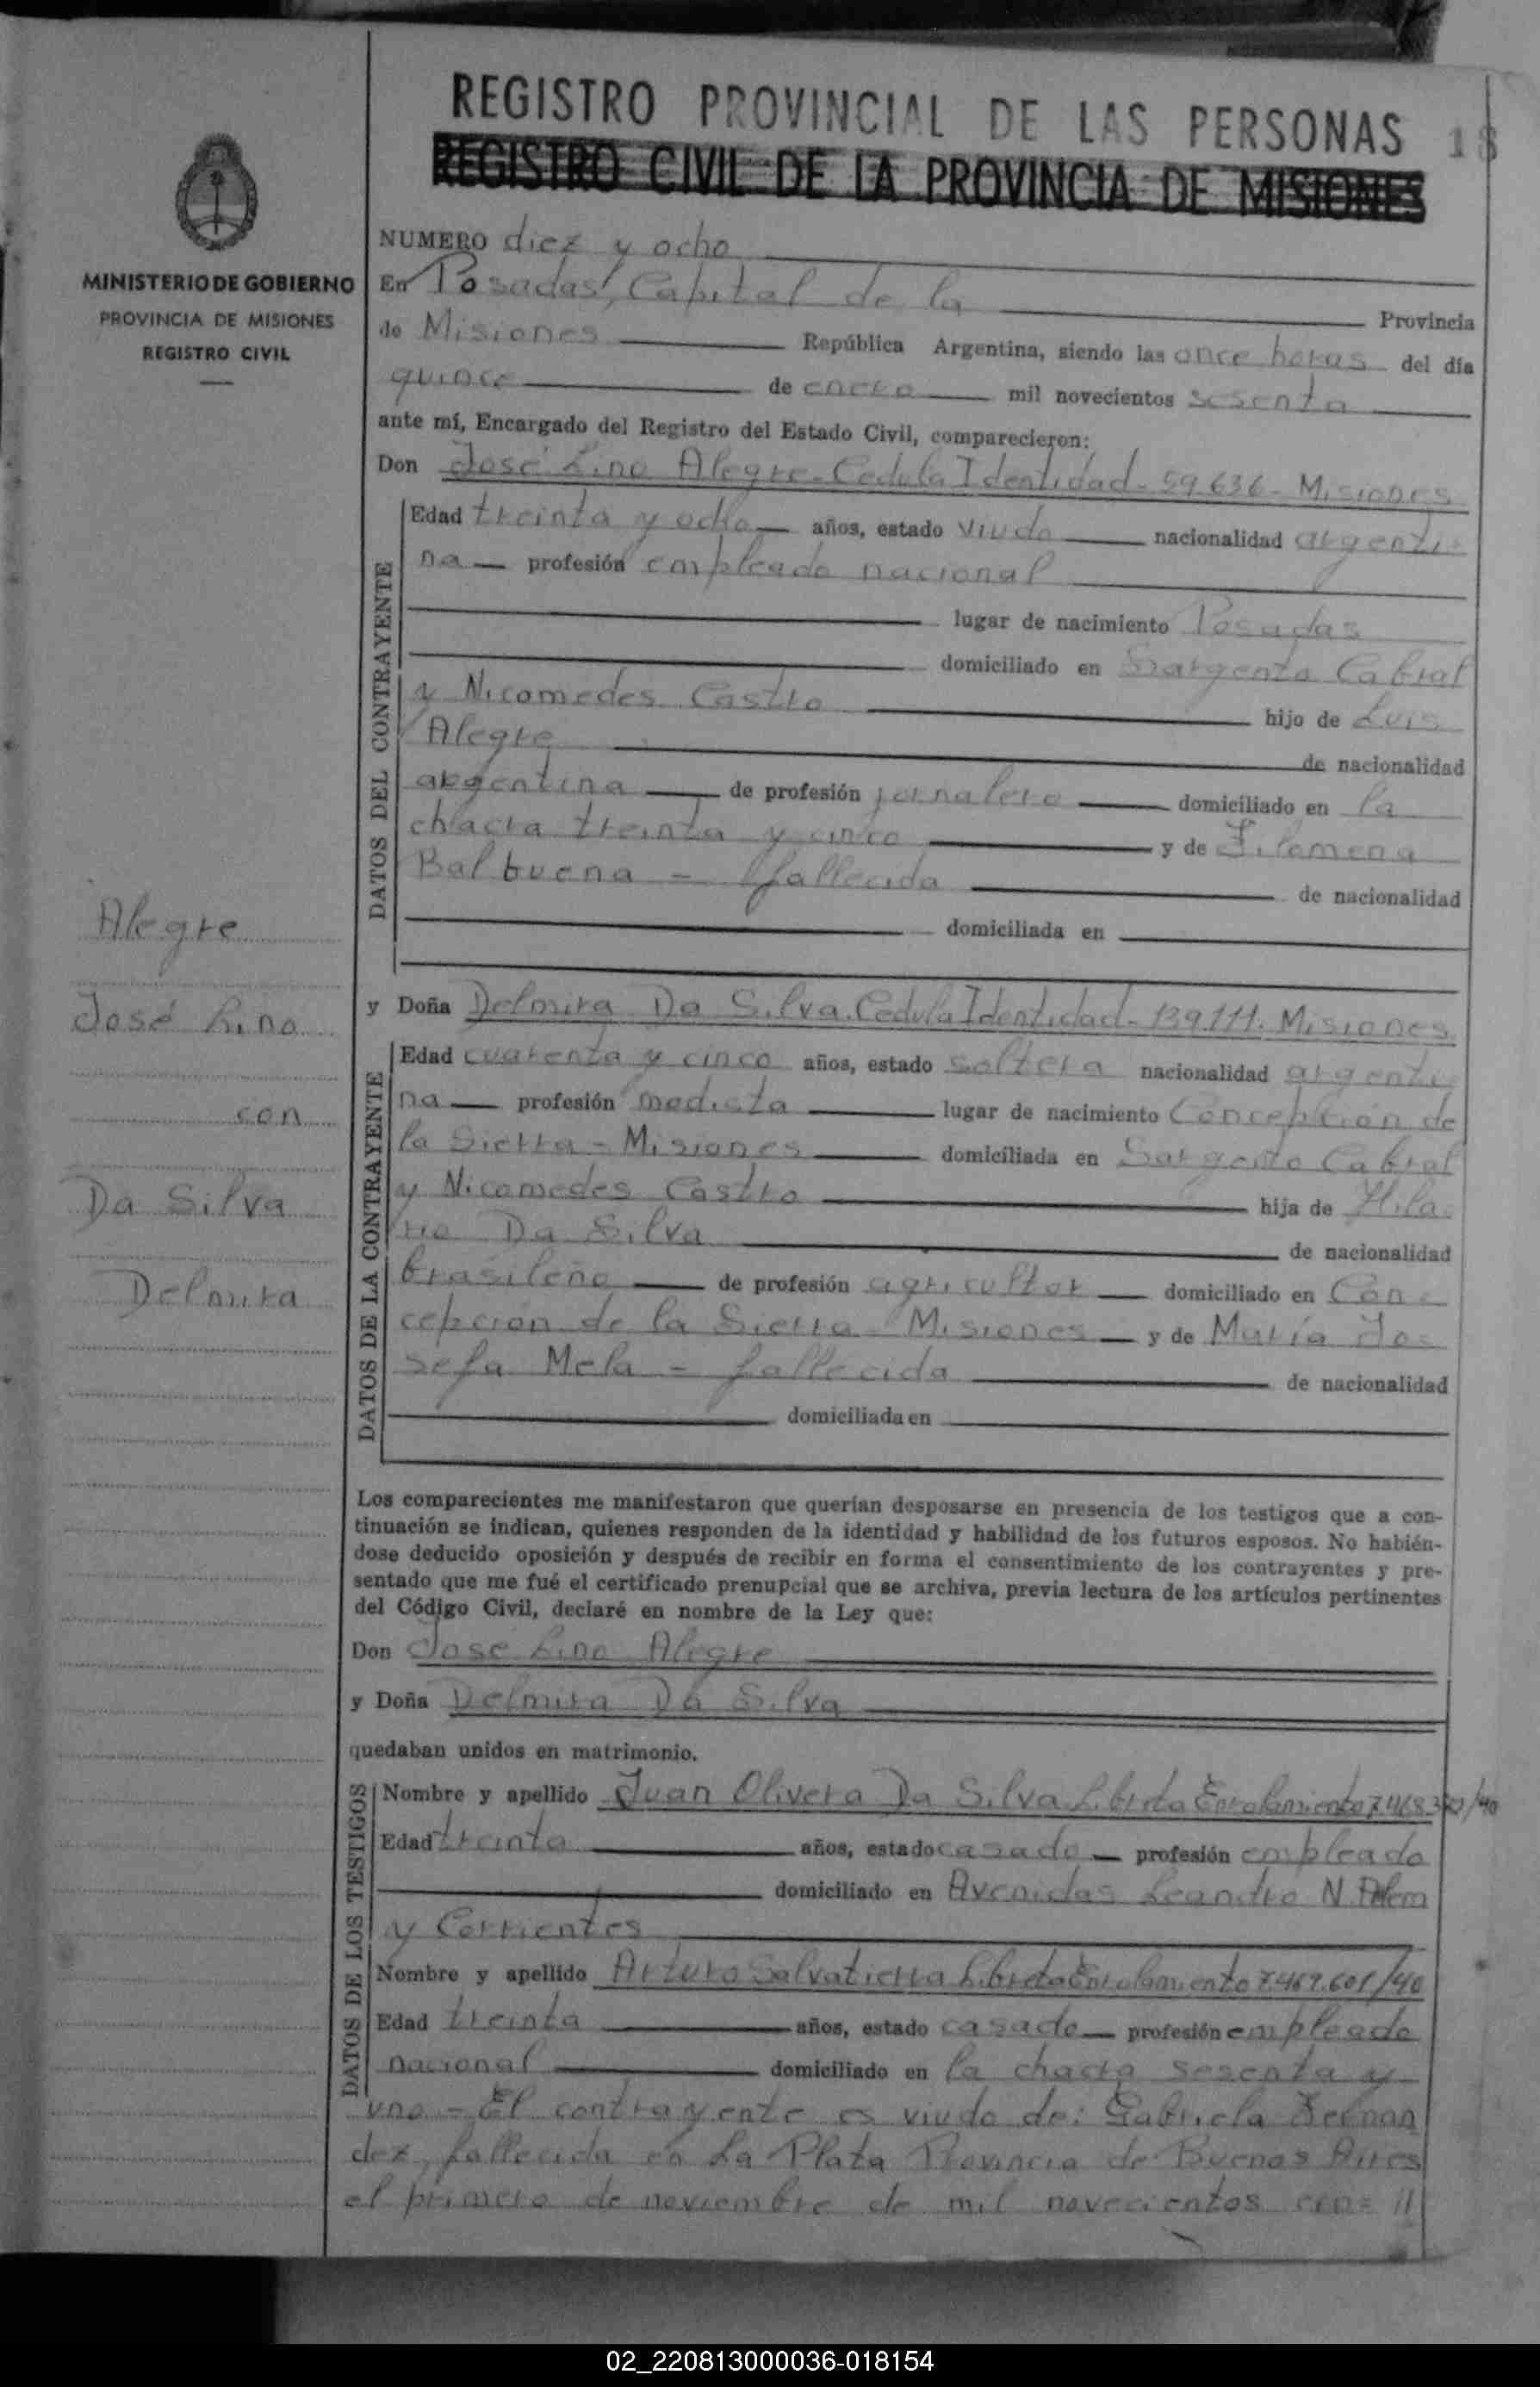 REGISTRO PROVINCIAL DE LAS PERSONAS 18
REGISTRO CIVIL DE LA PROVINCIA DE MISIONES
MINISTERIO DE GOBIERNO
PROVINCIA DE MISIONES
REGISTRO CIVIL
Alegre
José Lino
con
Da Silva
Delmira
NUMERO diez y ocho
En Posadas, Capital de la Provincia
de Misiones República Argentina, siendo las once horas del día
quince de enero mil novecientos sesenta
ante mí, Encargado del Registro del Estado Civil, comparecieron:
Don José Lino Alegre - Cedula Identidad - 59.636 - Misiones
DATOS DEL CONTRAYENTE
Edad treinta y ocho años, estado viudo nacionalidad argenti-
na profesión empleado nacional
lugar de nacimiento Posadas
domiciliado en Sargento Cabral
y Nicomedes Castro hijo de Luis
Alegre de nacionalidad
argentina de profesión jornalero domiciliado en la
chacra treinta y cinco y de Filomena
Balbuena - fallecida de nacionalidad
domiciliada en
y Doña Delmira Da Silva. Cedula Identidad - 139.111. Misiones
DATOS DE LA CONTRAYENTE
Edad cuarenta y cinco años, estado soltera nacionalidad argenti-
na profesión modista lugar de nacimiento Concepción de
la Sierra - Misiones domiciliada en Sargento Cabral
y Nicomedes Castro hija de Hila-
rio Da Silva de nacionalidad
brasileña de profesión agricultor domiciliado en Con-
cepción de la Sierra - Misiones y de María Jo-
sefa Mela - fallecida de nacionalidad
domiciliada en
Los comparecientes me manifestaron que querían desposarse en presencia de los testigos que a con-
tinuación se indican, quienes responden de la identidad y habilidad de los futuros esposos. No habién-
dose deducido oposición y después de recibir en forma el consentimiento de los contrayentes y pre-
sentado que me fué el certificado prenupcial que se archiva, previa lectura de los artículos pertinentes
del Código Civil, declaré en nombre de la Ley que:
Don José Lino Alegre
y Doña Delmira Da Silva
quedaban unidos en matrimonio.
DATOS DE LOS TESTIGOS
Nombre y apellido Juan Olivera Da Silva Libreta Enrolamiento
Edad treinta años, estado casado profesión empleado
domiciliado en Avenidas Leandro N. Alem
y Corrientes
Nombre y apellido Arturo Salvatierra Libreta Enrolamiento 7.467.601/40
Edad treinta años, estado casado profesión empleado
nacional domiciliado en la chacra sesenta y
uno - El contrayente es viudo de: Gabriela Fernan
dez, fallecida en La Plata Provincia de Buenos Aires
el primero de noviembre de mil novecientos cin=
02_220813000036-018154